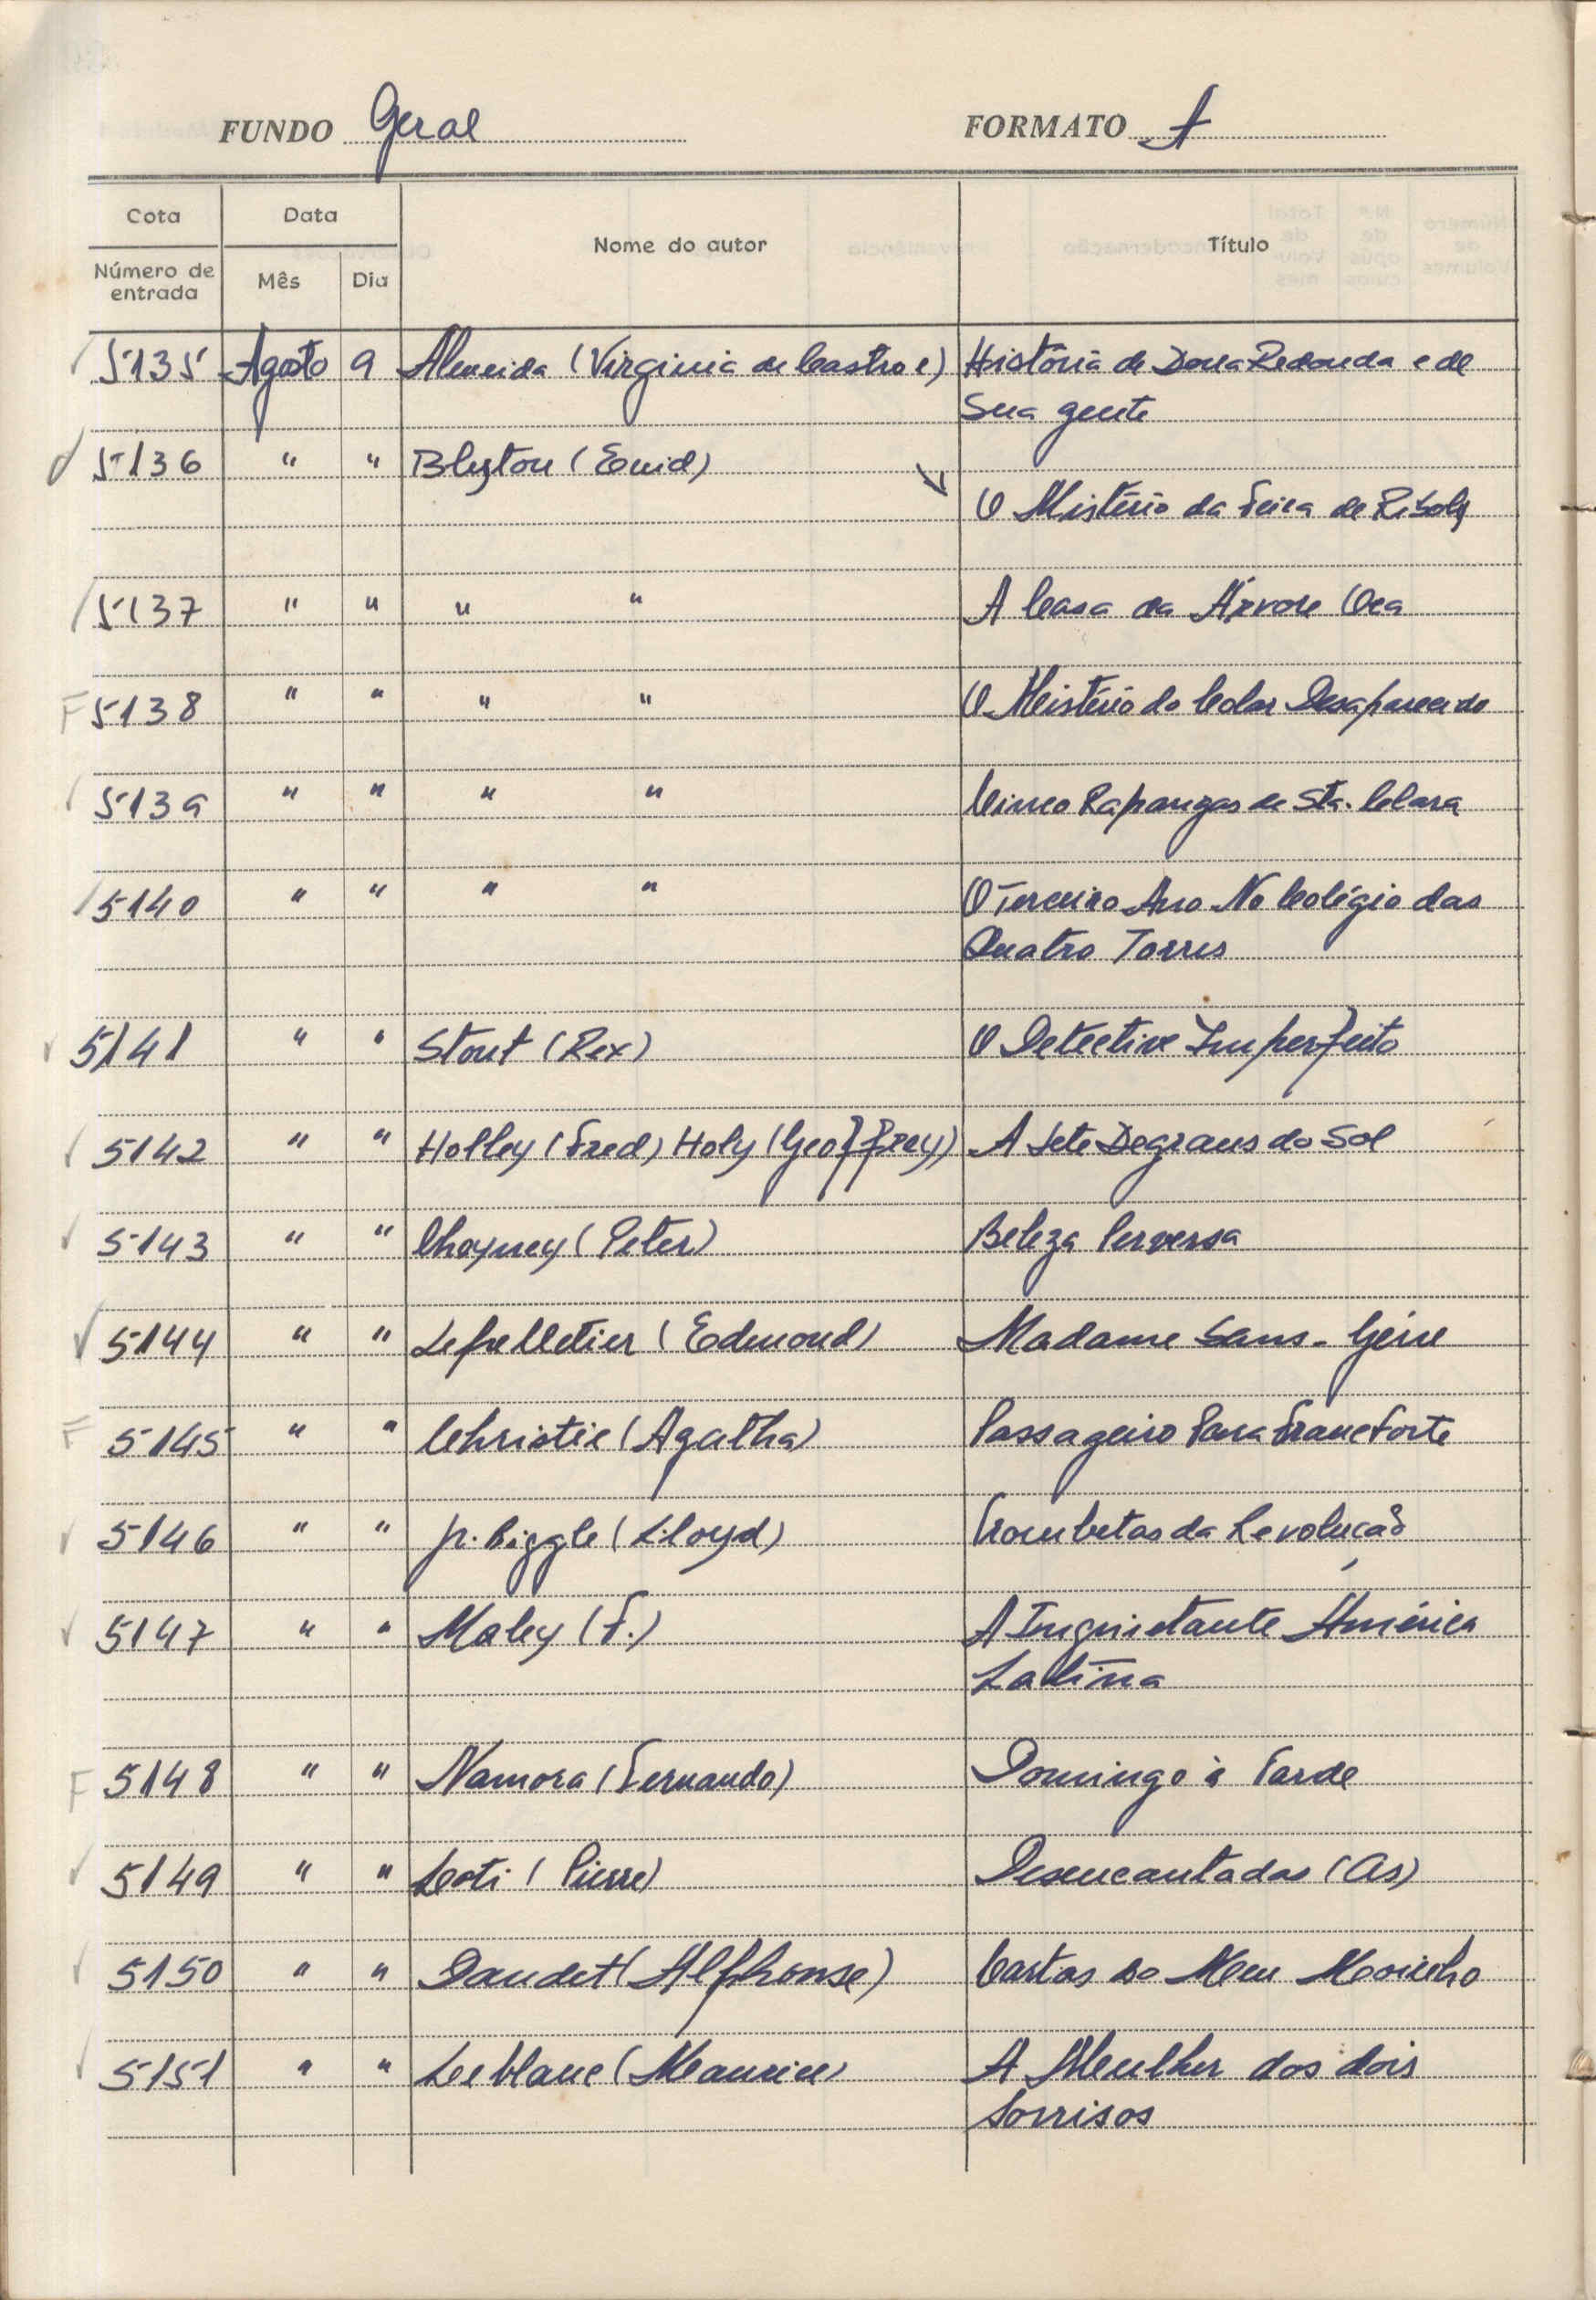 FUNDO Geral FORMATO A
Cota Data Nome do autor Título
Número de entrada Mês Dia
5135 Agosto 9 Almeida (Virginia de Castro e) História de Dona Redonda e de
Sua gente
5136 " " Blyton (Enid)
O Mistério da Feira de Riboly
5137 " " " " A Casa da Árvore Oca
F 5138 " " " " O Mistério do Colar Desaparecido
5139 " " " " Cinco Raparigas de Sta. Clara
5140 " " " " O Terceiro Ano No Colégio das
Quatro Torres
5141 " " Stout (Rex) O Detective Imperfeito
5142 " " Holley (Fred) Holy (Geoffrey) A Sete Degraus do Sol
5143 " " Cheyney (Peter) Beleza Perversa
5144 " " Lepelletier (Edmond) Madame Sans-Gêne
F 5145 " " Christie (Agatha) Passageiro Para Francforte
5146 " " Jr. Biggle (Lloyd) Trombetas da Revolução
5147 " " Maley (F.) A Inquietante América
Latina
F 5148 " " Namora (Fernando) Domingo à Tarde
5149 " " Loti (Pierre) Desencantadas (As)
5150 " " Daudet (Alphonse) Cartas do Meu Moinho
5151 " " Leblanc (Maurice) A Mulher dos dois
Sorrisos